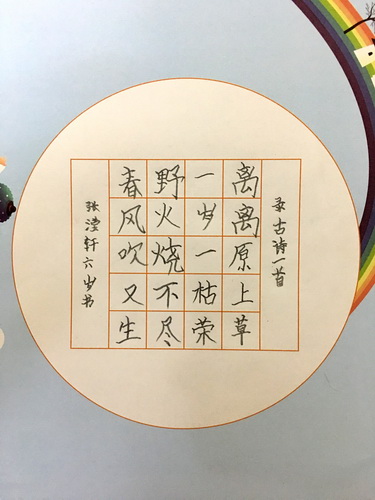 录古诗一首
离离原上草
一岁一枯荣
野火烧不尽
春风吹又生
张滢轩六岁书